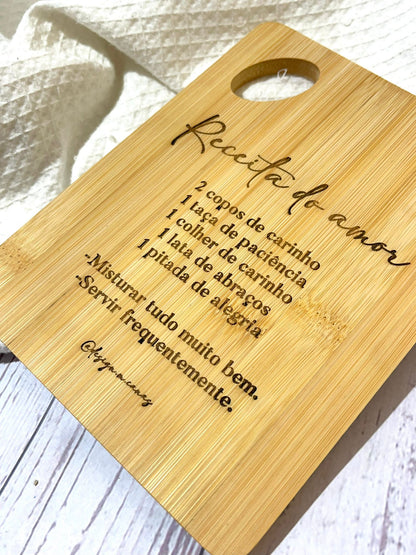 Receita do amor
2 copos de carinho
1 taça de paciência
1 colher de carinho
1 lata de abraços
1 pitada de alegria
-Misturar tudo muito bem.
-Servir frequentemente.